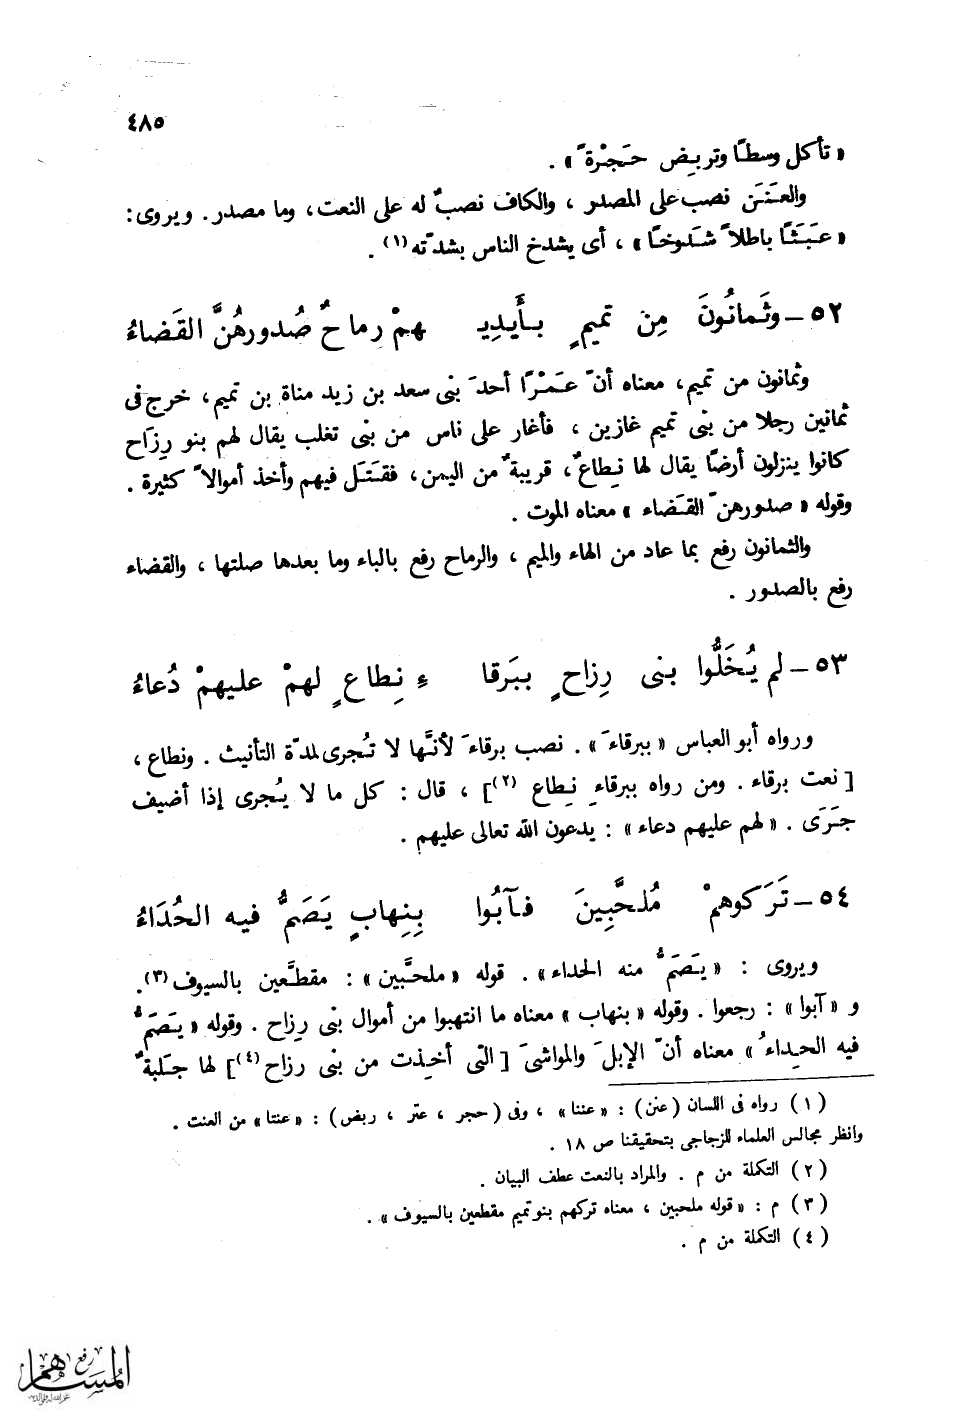 ٤٨٥
« تأكل وسطًا وتربِض حَجْرةً » .
والعَنَن نصب على المصدر ، والكاف نصبٌ له على النعت، وما مصدر. ويروى :
« عَبَثًا باطلاً شَدوخًا » ، أى يشدخ الناس بشدّته (١) .
٥٢ – وثَمانُونَ مِن تميمٍ بأَيدِيـ هِمْ رِماحٌ صُدورهُنَّ القَضاءُ
وثمانون من تميم، معناه أنّ عَمْرًا أحدَ بنى سعد بن زيد مناة بن تميم، خرج فى
ثمانين رجلا من بنى تميم غازين ، فأغار على ناس من بنى تغلب يقال لهم بنو رِزَاح
كانوا ينزلون أرضًا يقال لها نِطاعٌ، قريبةٌ من اليمن، فقَتَل فيهم وأخذ أموالاً كثيرة .
وقوله « صدورهنّ القَضاء » معناه الموت .
والثمانون رفع بما عاد من الهاء والميم ، والرماح رفع بالباء وما بعدها صلتها ، والقضاء
رفع بالصدور .
٥٣ – لم يُخَلُّوا بنى رِزاحٍ ببَرقا ءِ نِطاعٍ لهمْ عليهمْ دُعاءُ
ورواه أبو العباس « ببرقاءَ » . نصب برقاءَ لأنَّها لا تُجرى لمدّة التأنيث . ونطاع ،
[ نعت برقاء . ومن رواه ببرقاءِ نِطاع (٢) ] ، قال : كل ما لا يُجرى إذا أضيف
جَرَى . « لهم عليهم دعاء » : يدعون الله تعالى عليهم .
٥٤ – تَرَكوهمْ مُلحَّبِينَ فآبُوا بِنِهابٍ يَصَمُّ فيه الحُدَاءُ
ويروى : « يَصَمُّ منه الحداء » . قوله « ملحَّبين » : مقطَّعين بالسيوف (٣).
و « آبوا » : رجعوا . وقوله « بنهاب » معناه ما انتهبوا من أموال بنى رِزاح . وقوله « يَصَمُّ
فيه الحِداءُ » معناه أنّ الإبلَ والمواشىَ [ التى أخِذت من بنى رزاح (٤) ] لها جَلبةٌ
( ١ ) رواه فى اللسان ( عنن ) : « عننا » ، وفى ( حجر ، عتر ، ربض ) : « عنتا » من العنت .
وانظر مجالس العلماء للزجاجى بتحقيقنا ص ١٨ .
( ٢ ) التكملة من م . والمراد بالنعت عطف البيان .
( ٣ ) م : « قوله ملحبين ، معناه تركهم بنو تميم مقطعين بالسيوف » .
( ٤ ) التكملة من م .